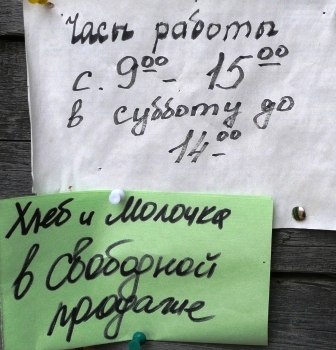 Часы работы
с. 9⁰⁰ - 15⁰⁰
в субботу до
14⁰⁰
Хлеб и Молочка
в свободной
продаже